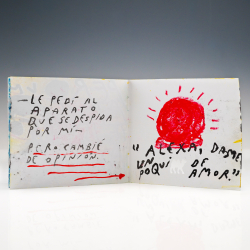 —LE PEDÍ AL
APARATO
QUE SE DESPIDA
POR MÍ—
PERO CAMBIÉ
DE OPINIÓN.
"ALEXA, DAME
UN POQUI DE
AMOR"